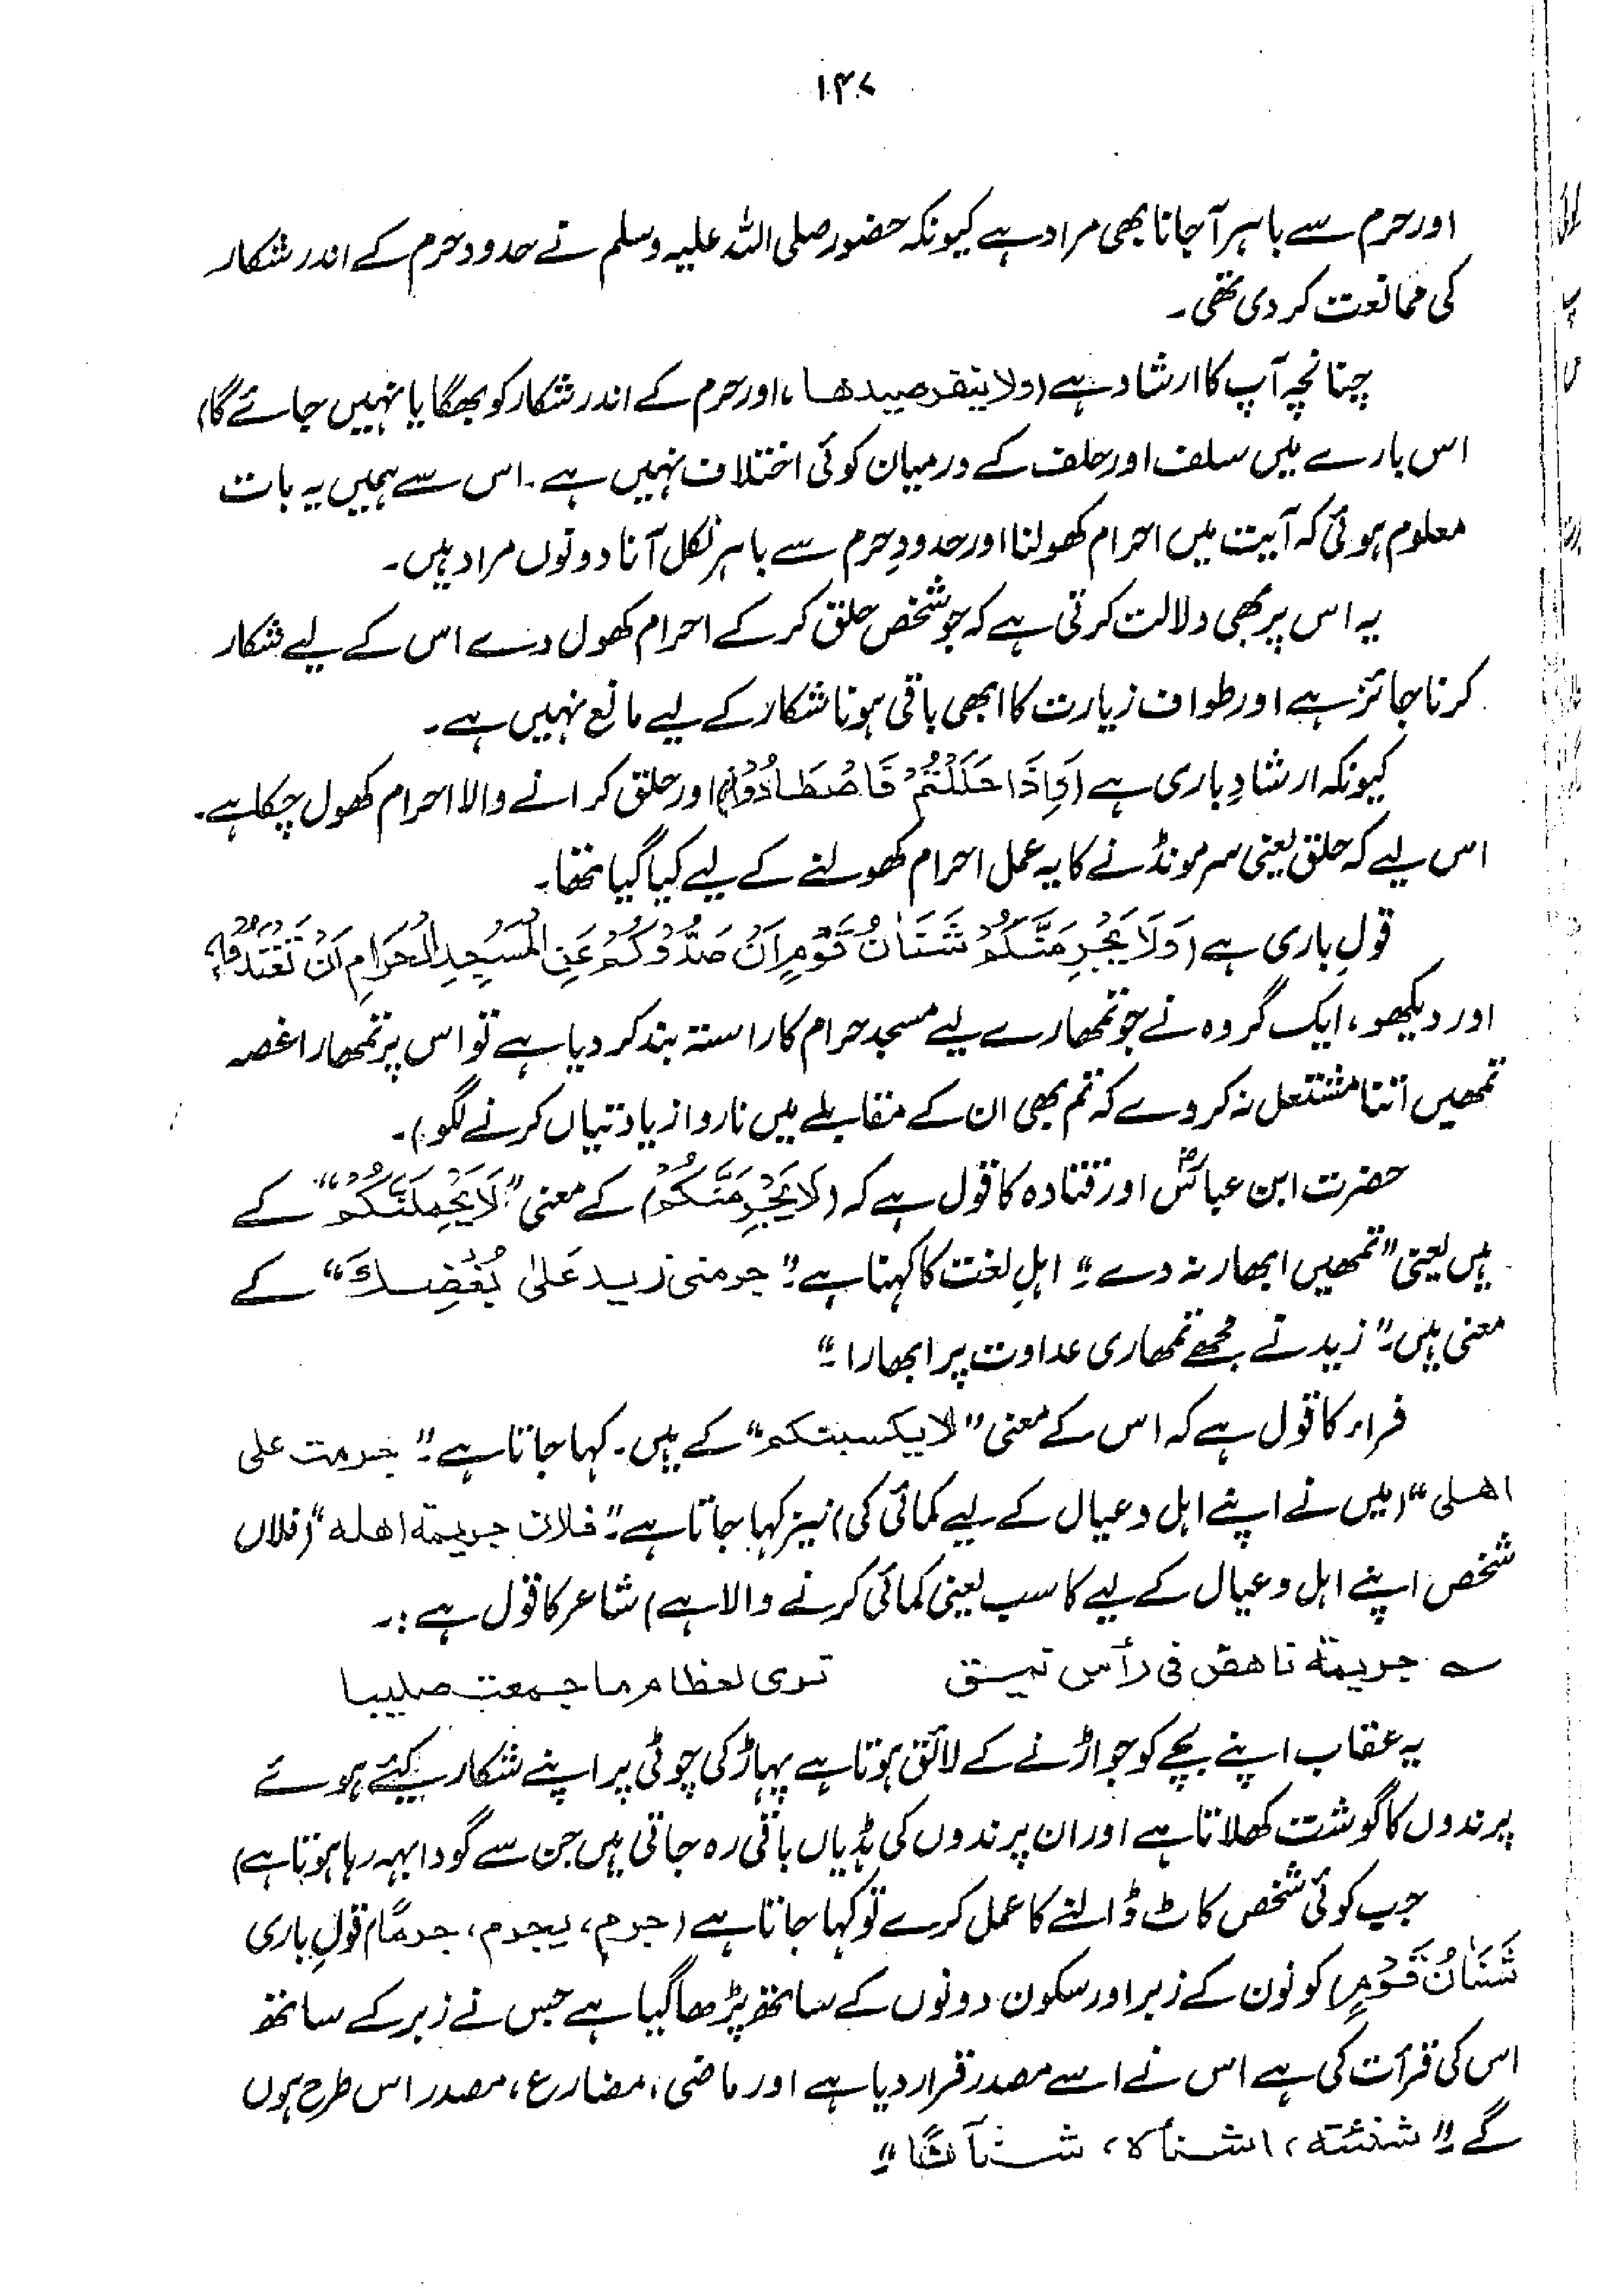 ۱۴۷
اور حرم سے باہر آجانا بھی مراد ہے کیونکہ حضور صلی اللہ علیہ وسلم نے حدود حرم کے اندر شکار
کی ممانعت کر دی تھی۔
چنانچہ آپ کا ارشاد ہے (ولا ینفر صیدھا ، اور حرم کے اندر شکار کو بھگایا نہیں جائے گا)
اس بارے میں سلف اور خلف کے درمیان کوئی اختلاف نہیں ہے۔ اس سے ہمیں یہ بات
معلوم ہوئی کہ آیت میں احرام کھولنا اور حدودِ حرم سے باہر نکل آنا دونوں مراد ہیں۔
یہ اس پر بھی دلالت کرتی ہے کہ جو شخص حلق کر کے احرام کھول دے اس کے لیے شکار
کرنا جائز ہے اور طواف زیارت کا ابھی باقی ہونا شکار کے لیے مانع نہیں ہے۔
کیونکہ ارشادِ باری ہے (وَاِذَا حَلَلْتُمْ فَاصْطَادُوْا) اور حلق کرانے والا احرام کھول چکا ہے۔
اس لیے کہ حلق یعنی سر مونڈنے کا یہ عمل احرام کھولنے کے لیے کیا گیا تھا۔
قولِ باری ہے (وَلَا یَجْرِمَنَّکُمْ شَنَاٰنُ قَوْمٍ اَنْ صَدُّوْکُمْ عَنِ الْمَسْجِدِ الْحَرَامِ اَنْ تَعْتَدُوْا۔
اور دیکھو، ایک گروہ نے جو تمھارے لیے مسجد حرام کا راستہ بند کر دیا ہے تو اس پر تمھارا غصہ
تمھیں اتنا مشتعل نہ کر دے کہ تم بھی ان کے مقابلے میں ناروا زیادتیاں کرنے لگو)۔
حضرت ابن عباسؓ اور قتادہ کا قول ہے کہ (لَا یَجْرِمَنَّکُمْ) کے معنی "لَا یَحْمِلَنَّکُمْ" کے
ہیں یعنی "تمھیں ابھار نہ دے"۔ اہلِ لغت کا کہنا ہے "جرمنی زید عَلیٰ بُغْضِکَ" کے
معنی ہیں۔ "زید نے مجھے تمھاری عداوت پر ابھارا۔"
فراء کا قول ہے کہ اس کے معنی "لا یکسبنکم" کے ہیں۔ کہا جاتا ہے "جرمت علی
اھلی" (میں نے اپنے اہل و عیال کے لیے کمائی کی) نیز کہا جاتا ہے "فلان جریمۃ اھلہ" (فلاں
شخص اپنے اہل و عیال کے لیے کاسب یعنی کمائی کرنے والا ہے) شاعر کا قول ہے:۔
؎ جریمۃ ناھض فی رأس نیق تری لعظام ما جمعت صلیبا
یہ عقاب اپنے بچے کو جو اڑنے کے لائق ہوتا ہے پہاڑ کی چوٹی پر اپنے شکار کیئے ہوئے
پرندوں کا گوشت کھلاتا ہے اور ان پرندوں کی ہڈیاں باقی رہ جاتی ہیں جن سے گودا بہہ رہا ہوتا ہے)
جب کوئی شخص کاٹ ڈالنے کا عمل کرے تو کہا جاتا ہے (جرم، یجرم، جرمًا) قولِ باری
شَنَاٰنُ قَوْمٍ) کو نون کے زبر اور سکون دونوں کے ساتھ پڑھا گیا ہے جس نے زبر کے ساتھ
اس کی قرأت کی ہے اس نے اسے مصدر قرار دیا ہے اور ماضی، مضارع، مصدر اس طرح ہوں
گے "شنئتہ، اشنأہ، شنآنًا"